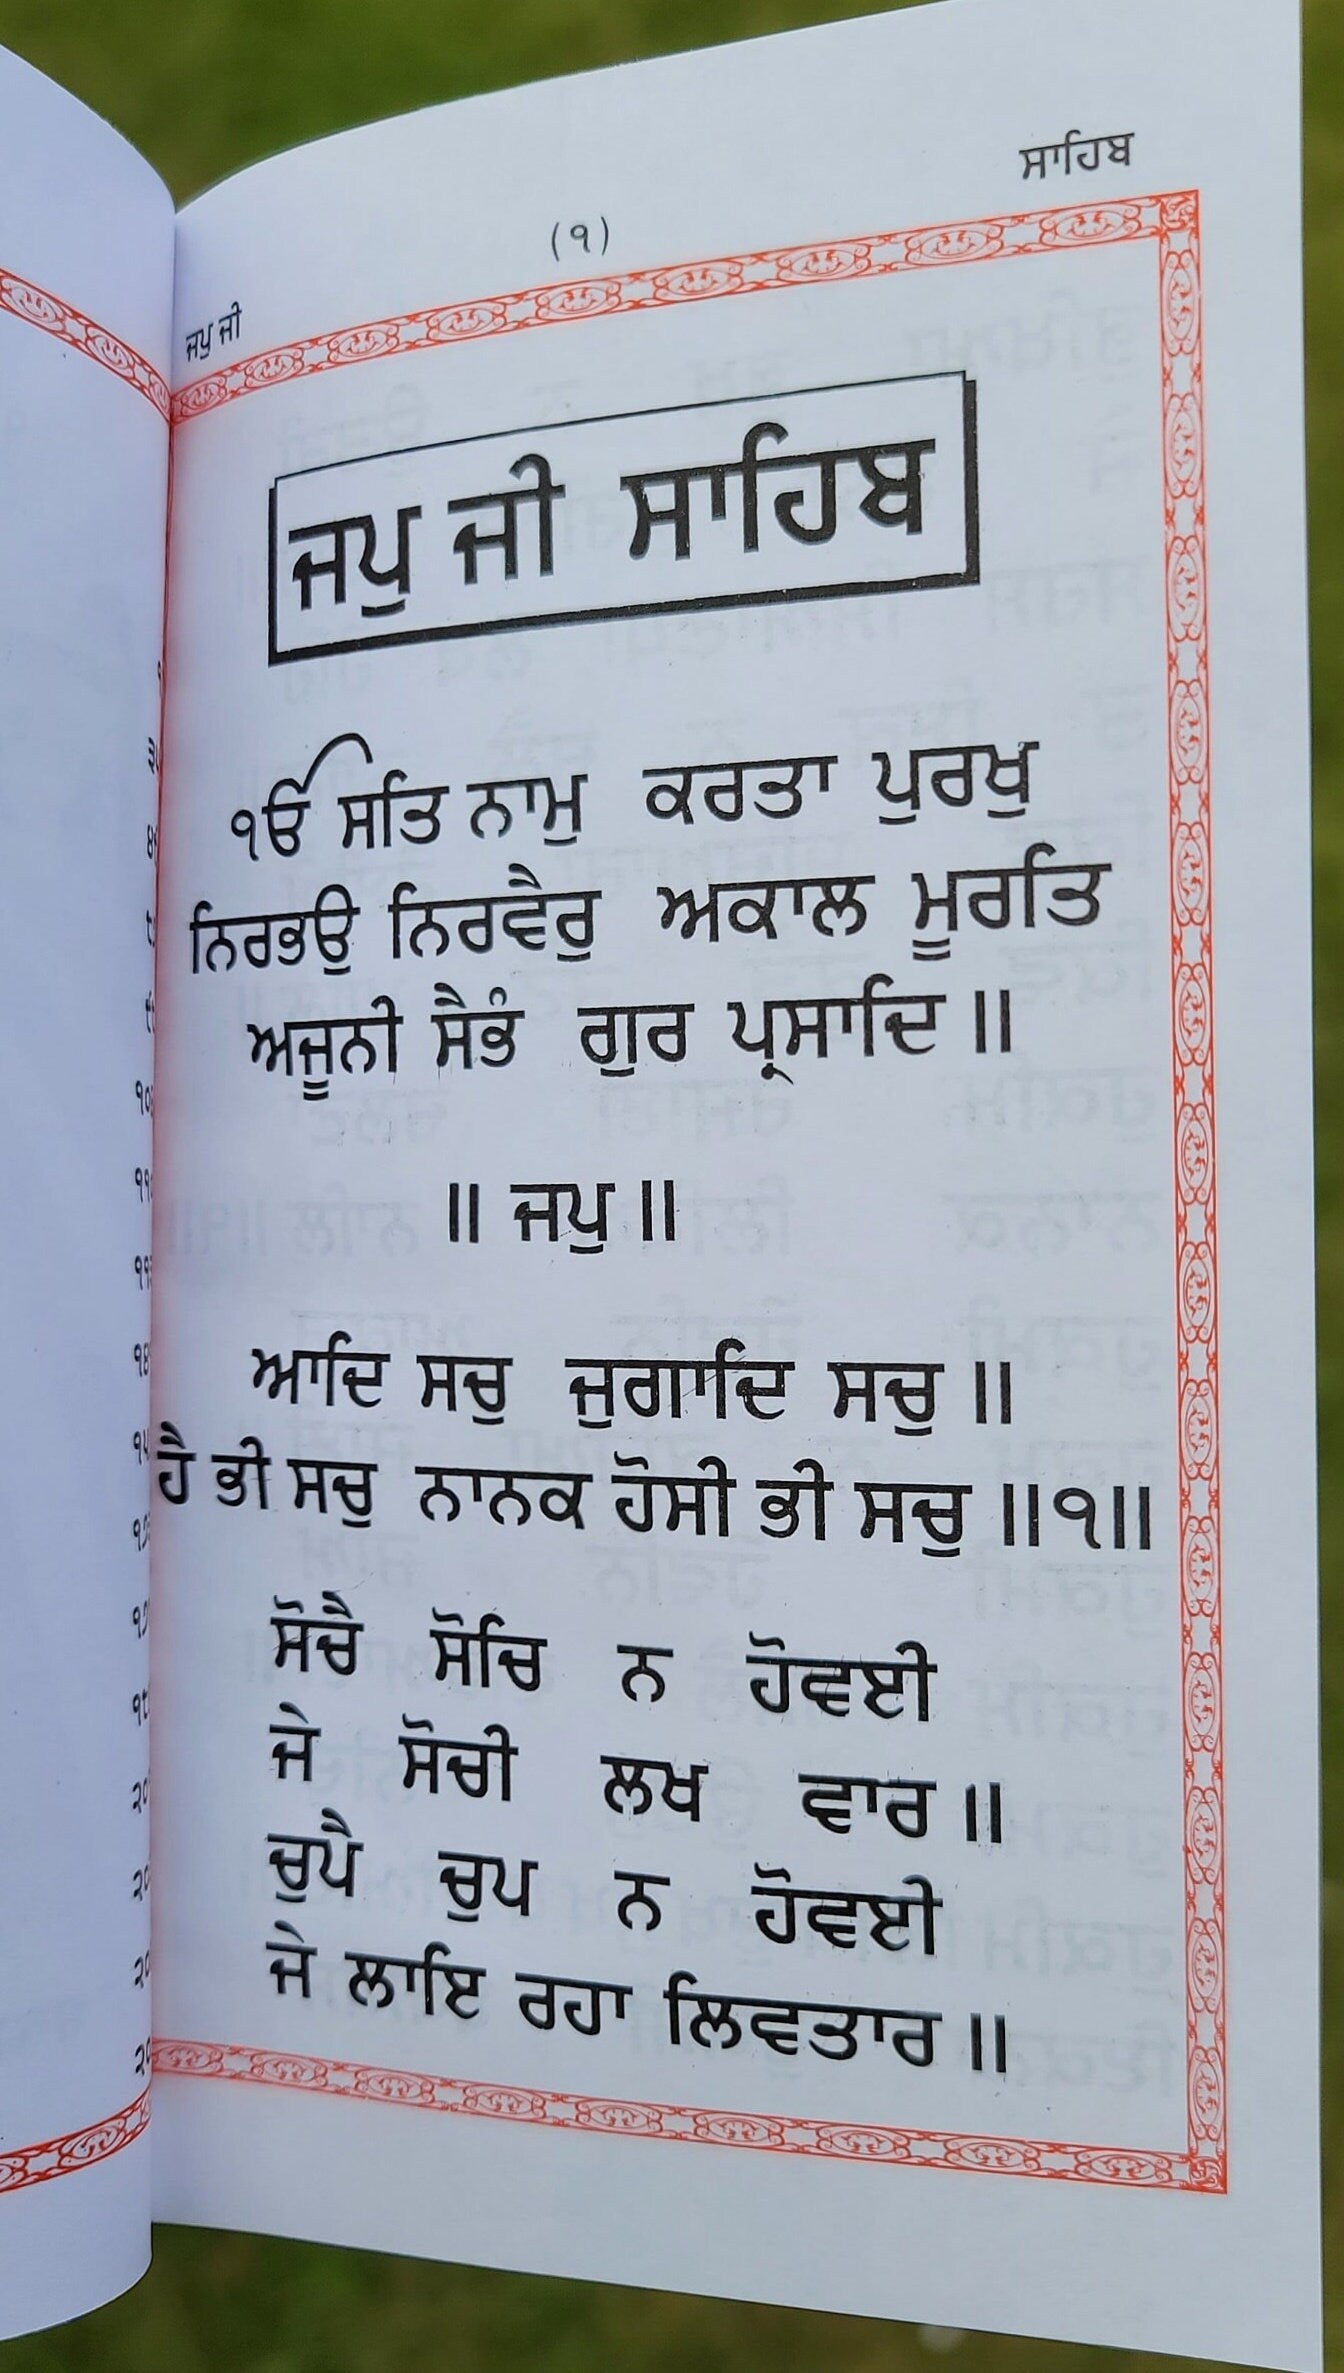 ਸਾਹਿਬ
(੧)
ਜਪੁ ਜੀ
ਜਪੁ ਜੀ ਸਾਹਿਬ
ੴ ਸਤਿ ਨਾਮੁ ਕਰਤਾ ਪੁਰਖੁ
ਨਿਰਭਉ ਨਿਰਵੈਰੁ ਅਕਾਲ ਮੂਰਤਿ
ਅਜੂਨੀ ਸੈਭੰ ਗੁਰ ਪ੍ਰਸਾਦਿ ॥
॥ ਜਪੁ ॥
ਆਦਿ ਸਚੁ ਜੁਗਾਦਿ ਸਚੁ ॥
ਹੈ ਭੀ ਸਚੁ ਨਾਨਕ ਹੋਸੀ ਭੀ ਸਚੁ ॥੧॥
ਸੋਚੈ ਸੋਚਿ ਨ ਹੋਵਈ
ਜੇ ਸੋਚੀ ਲਖ ਵਾਰ ॥
ਚੁਪੈ ਚੁਪ ਨ ਹੋਵਈ
ਜੇ ਲਾਇ ਰਹਾ ਲਿਵਤਾਰ ॥